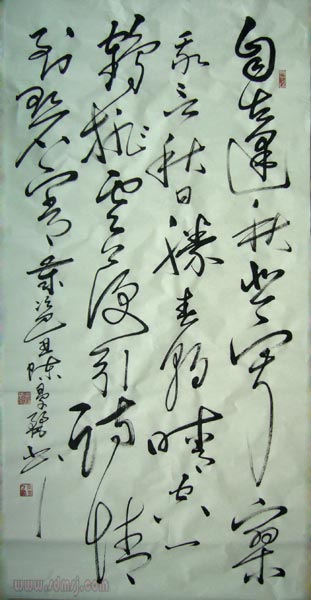 自古逢秋悲寂寥
我言秋日勝春朝晴空一
鶴排雲上便引詩情
到碧霄 陳 書
www.sdmsj.com